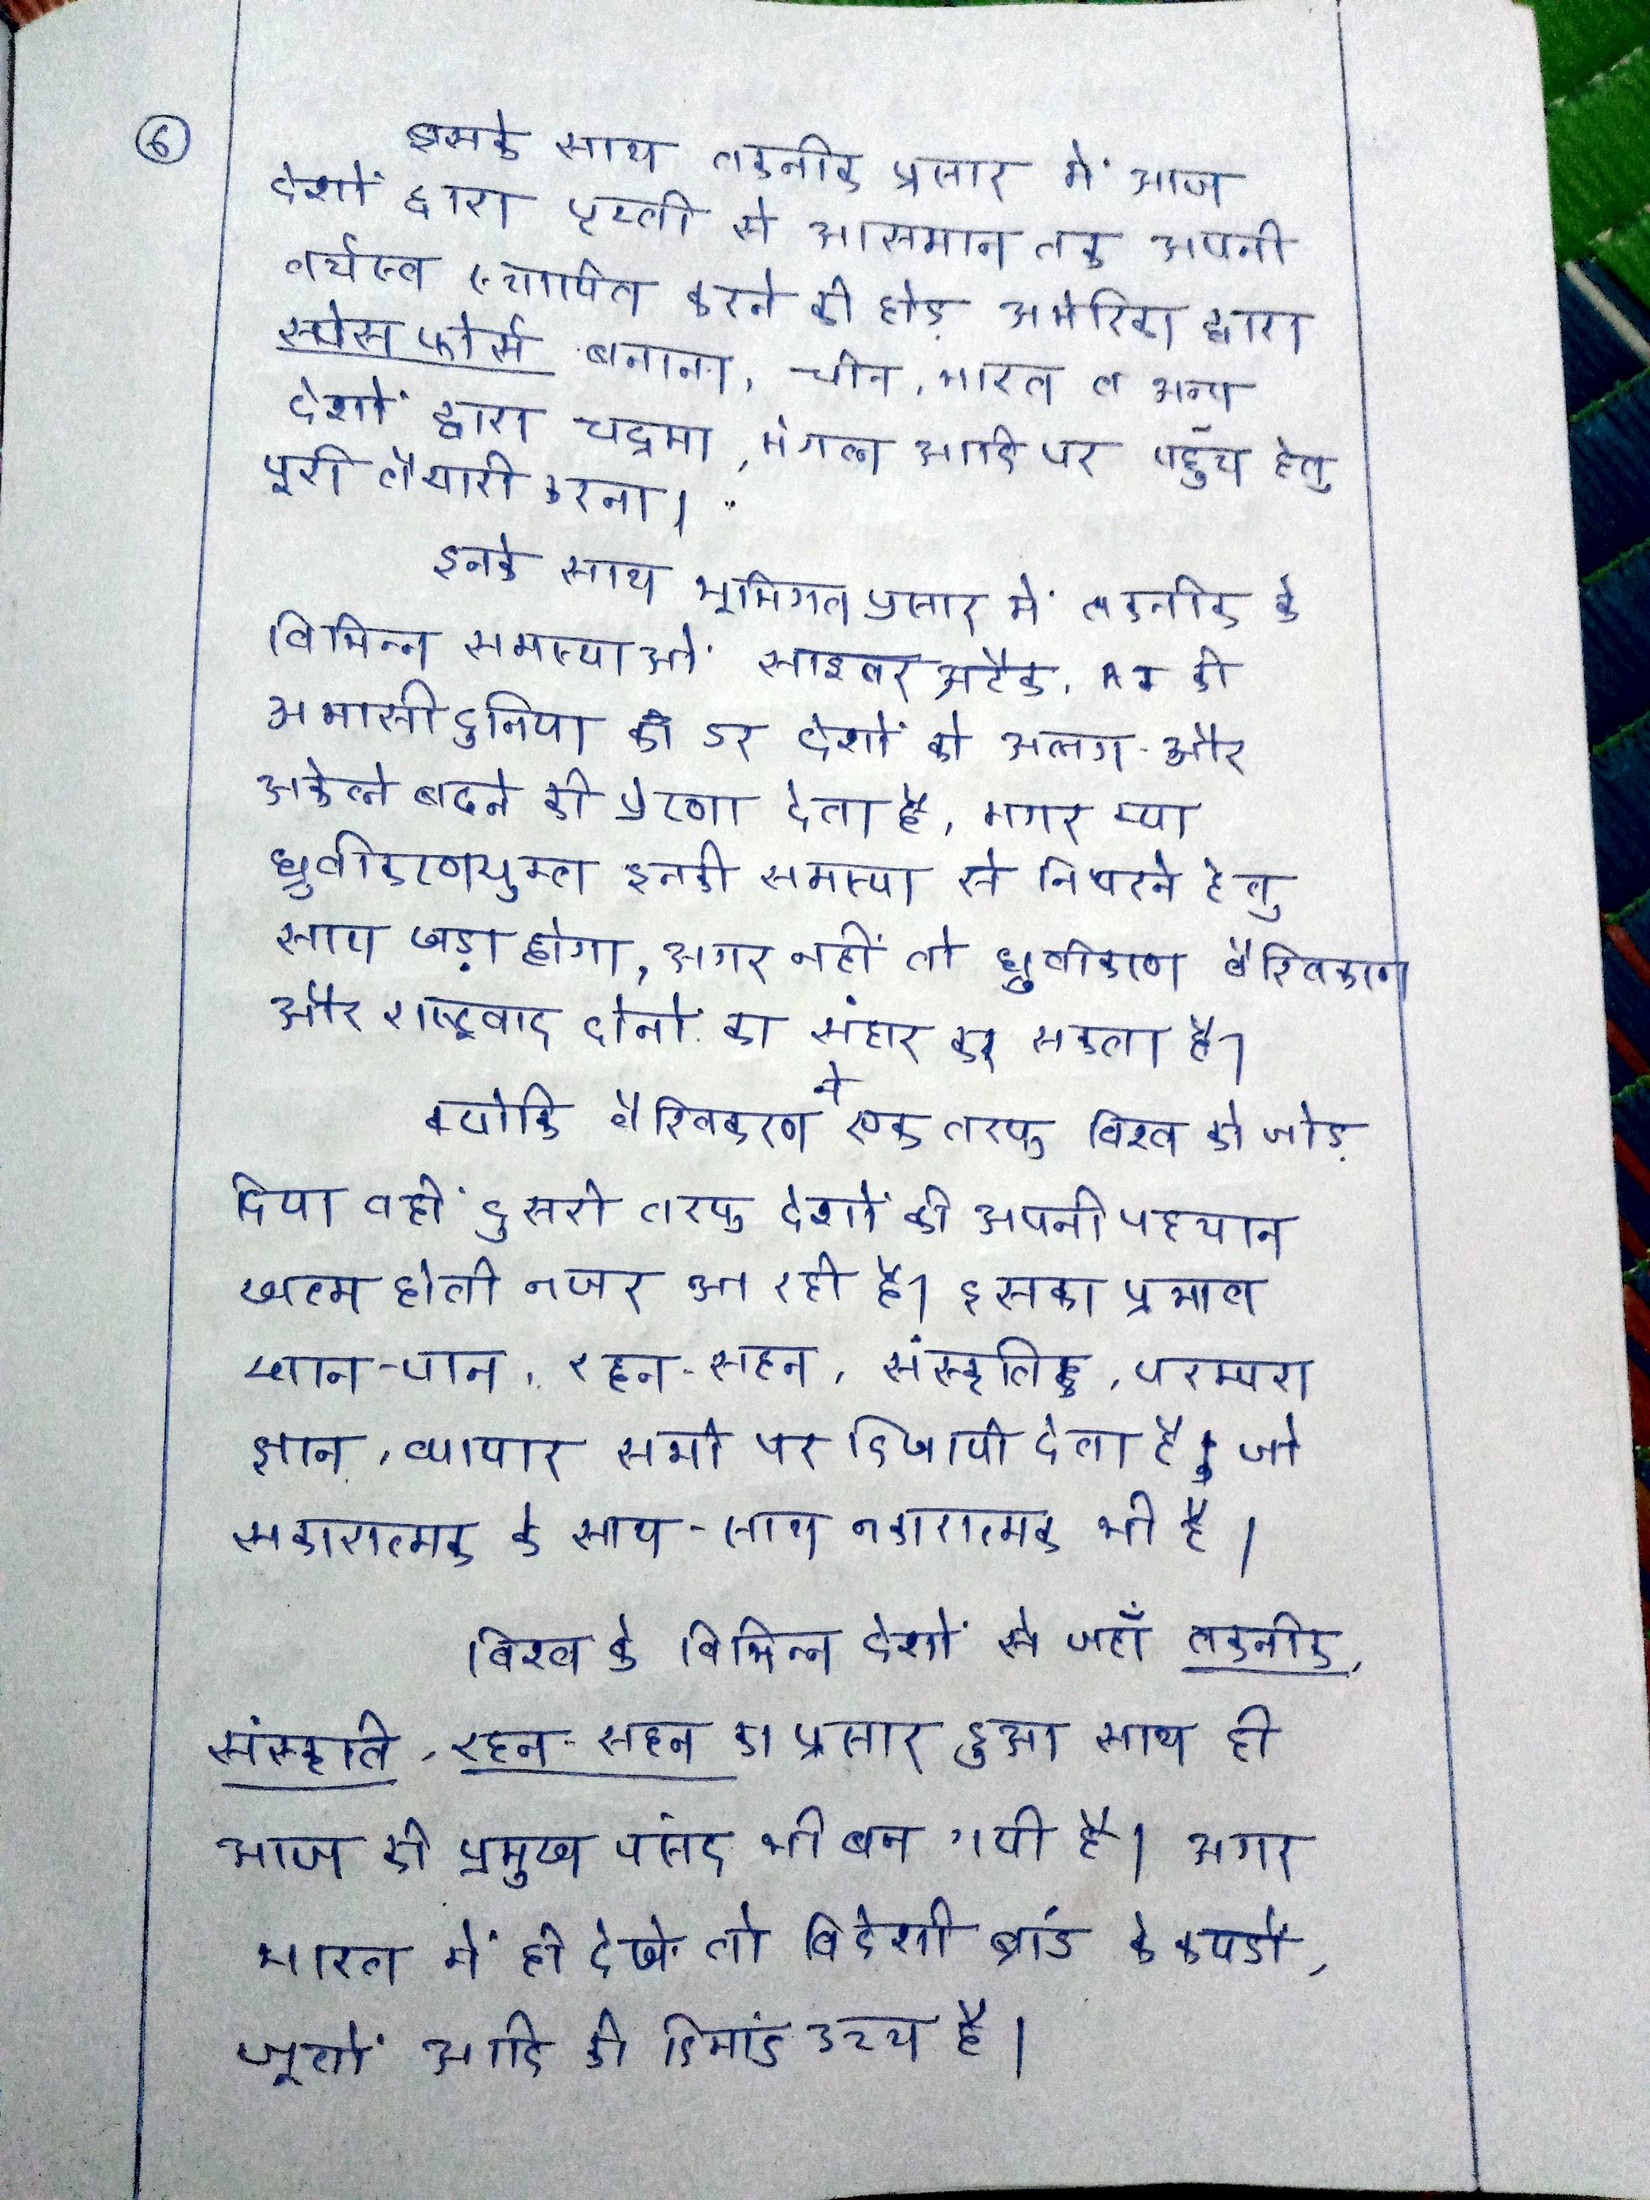 6
इसके साथ तकनीक प्रसार में आज
देशों द्वारा पृथ्वी से आसमान तक अपनी
वर्चस्व स्थापित करने की होड़ अमेरिका द्वारा
स्पेस फोर्स बनाना, चीन, भारत व अन्य
देशों द्वारा चद्रमा, मंगल आदि पर पहुँच हेतु
पूरी तैयारी करना।
इनके साथ भूमिगत प्रसार में तकनीक के
विभिन्न समस्याओं साइबर अटैक, AI की
अभासी दुनिया की डर देशों को अलग-और
अकेले बढने की प्रेरणा देता है, मगर क्या
ध्रुवीकरणयुक्त इनकी समस्या से निपटने हेतु
साथ खड़ा होगा, अगर नहीं तो ध्रुवीकरण वैश्विकरण
और राष्ट्रवाद दोनों का संहार कर सकता है।
क्योकि वैश्विकरण ने एक तरफ विश्व को जोड़
दिया वहीं दुसरी तरफ देशों की अपनी पहचान
खत्म होती नजर आ रही है। इसका प्रभाव
खान-पान, रहन-सहन, संस्कृतिक, परम्परा
ज्ञान, व्यापार सभी पर दिखायी देता है जो
सकारात्मक के साथ-साथ नकारात्मक भी है।
विश्व के विभिन्न देशों से जहाँ तकनीक,
संस्कृति, रहन-सहन का प्रसार हुआ साथ ही
आज की प्रमुख पसंद भी बन गयी है। अगर
भारत में ही देखें तो विदेशी ब्रांड के कपडों,
जूतों आदि की डिमांड उच्च है।